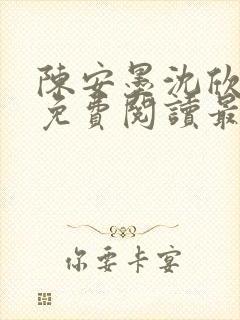 陳安墨沈欣
免費閱讀最
你要卡宴